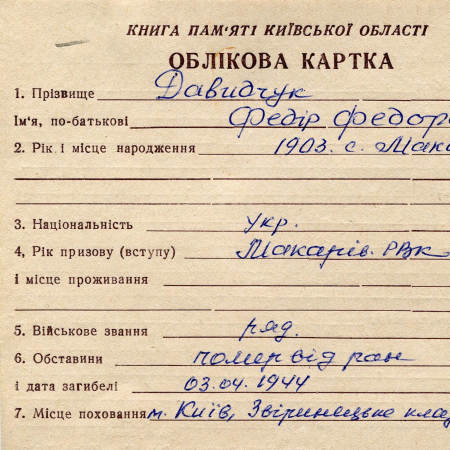 КНИГА ПАМ'ЯТІ КИЇВСЬКОЇ ОБЛАСТІ
ОБЛІКОВА КАРТКА
1. Прізвище Давидчук
Ім'я, по-батькові Федір Федоро
2. Рік і місце народження 1903. с. Мака
3. Національність укр.
4, Рік призову (вступу) Макарів. РВК
і місце проживання
5. Військове звання ряд.
6. Обставини помер від ран
і дата загибелі 03.04.1944
7. Місце поховання м. Київ, Звіринецьке клад